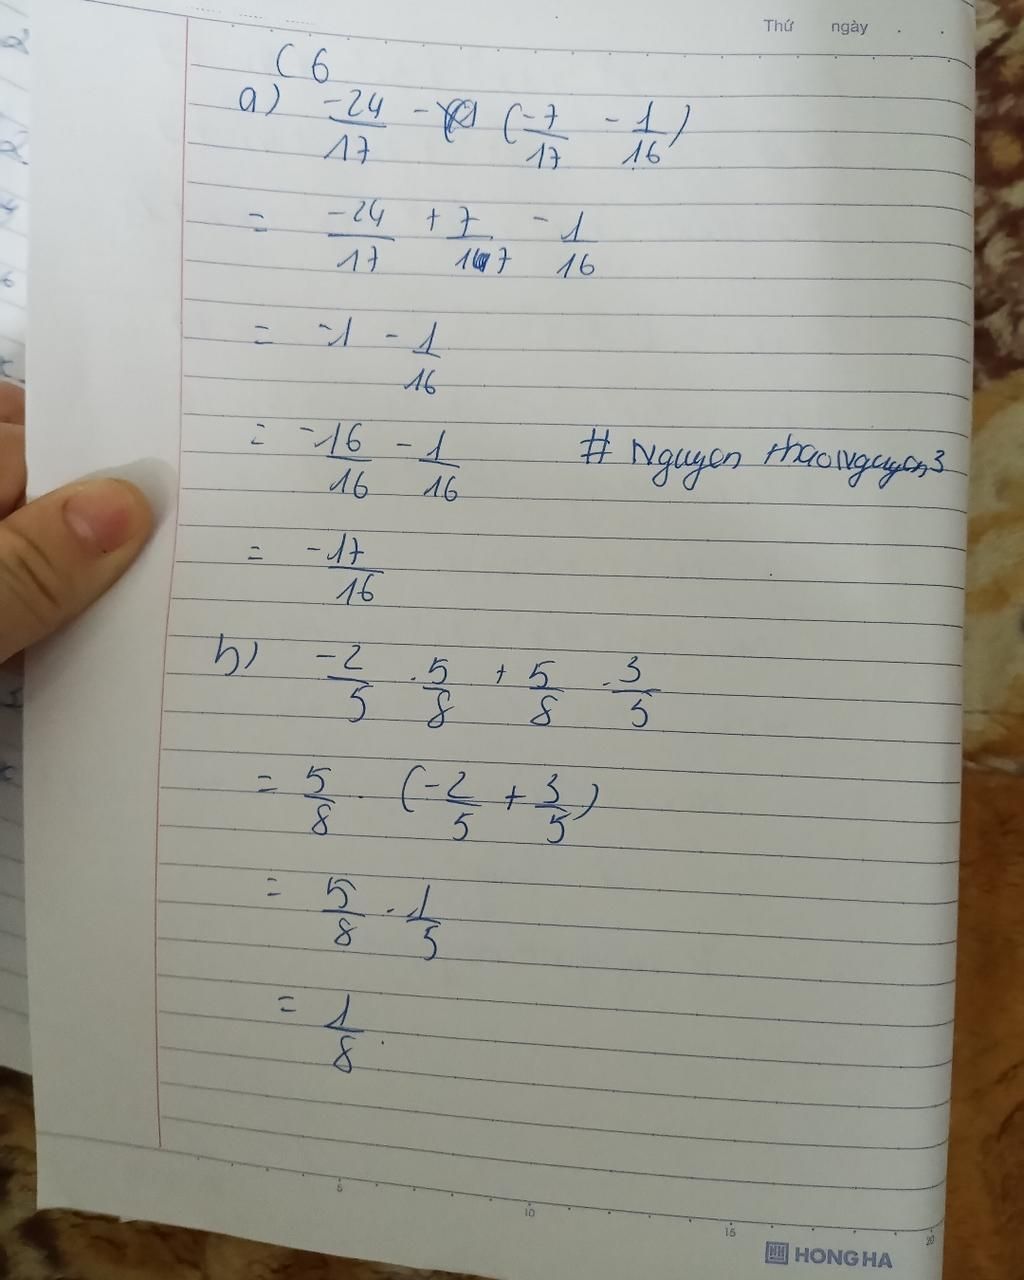 Thứ ngày . .
C 6
a) -24/17 - (-7/17 - 1/16)
= -24/17 + 7/17 - 1/16
= -1 - 1/16
= -16/16 - 1/16 # Nguyen thaoNguyen3
= -17/16
b) -2/5 . 5/8 + 5/8 . 3/5
= 5/8 . (-2/5 + 3/5)
= 5/8 . 1/5
= 1/8
5 10 15 20
HH HONG HA